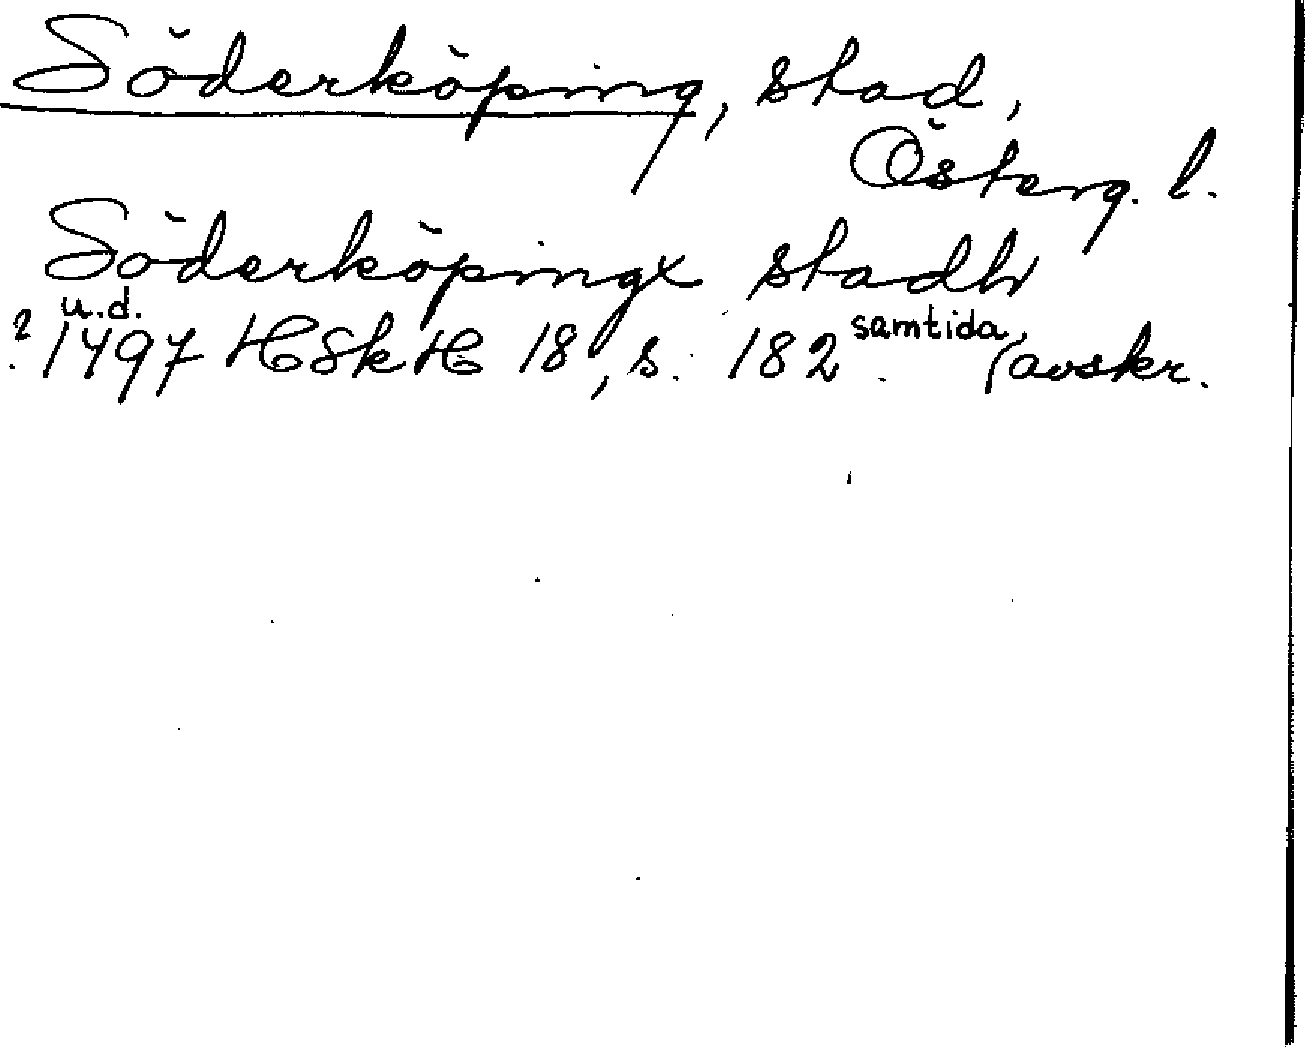 Söderköping, stad,
Österg. l.
Söderköpingx stadh
u.d.
? 1497 HSkH 18, s. 182 samtida
(avskr.